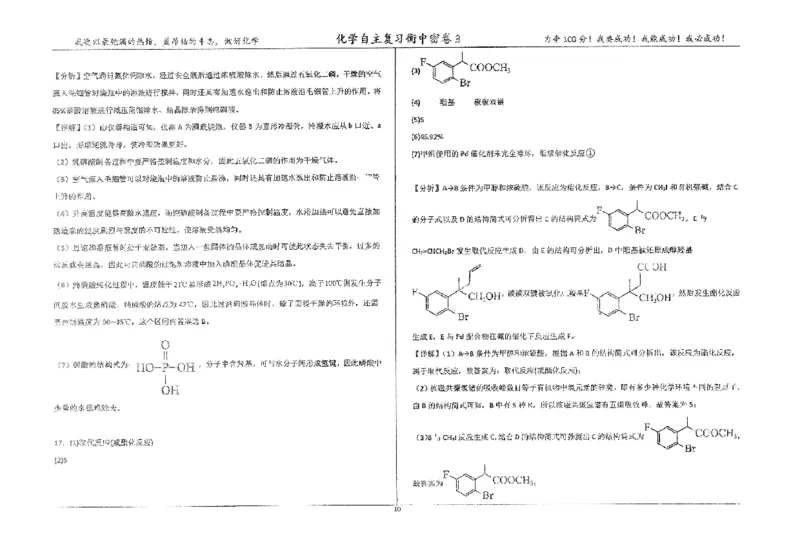 我要以最饱满的热情，最昂扬的斗志，做好化学
化学自主复习衡中密卷3
力争100分！我要成功！我能成功！我必成功！
【分析】空气通过氯化钙除水，经过安全瓶后通过浓硫酸除水，然后通过五氧化二磷，干燥的空气
流入毛细管对烧瓶中的溶液进行搅拌，同时还具有加速水逸出和防止溶液沿毛细管上升的作用，将
85%磷酸溶液进行减压蒸馏除水、结晶除杂得到纯磷酸。
【详解】（1）由仪器构造可知，仪器A为圆底烧瓶，仪器B为直形冷凝管，冷凝水应从b口进、a
口出，形成逆流冷却，使冷却效果更好。
（2）纯磷酸制备过程中要严格控制温度和水分，因此五氧化二磷的作用为干燥气体。
（3）空气流入毛细管可以对烧瓶中的溶液防止暴沸，同时还具有加速水逸出和防止溶液沿
上升的作用。
（4）升高温度能提高除水速度，而纯磷酸制备过程中要严格控制温度，水浴加热可以避免直接加
热造成的过度剧烈与温度的不可控性，使溶液受热均匀。
（5）过饱和溶液暂时处于亚稳态，当加入一些固体的晶体或晃动时可使此状态失去平衡，过多的
溶质就会结晶，因此可向磷酸的过饱和溶液中加入磷酸晶体促进其结晶。
（6）纯磷酸纯化过程中，温度低于21℃易形成2H₃PO₄·H₂O(熔点为30℃)，高于100℃则发生分子
间脱水生成焦磷酸，纯磷酸的熔点为42℃，因此过滤磷酸晶体时，除了需要干燥的环境外，还需
要控制温度为30~35℃，这个区间内答案选B。
（7）磷酸的结构式为
O
HO-P-OH
OH
，分子中含羟基，可与水分子间形成氢键，因此磷酸中
少量的水很难除去。
17．(1)取代反应(或酯化反应)
(2)5
(3)
F
COOCH₃
Br
(4) 羰基 碳碳双键
(5)5
(6)46.92%
(7)甲组使用的Pd催化剂未完全除尽，继续催化反应①
【分析】A→B条件为甲醇和浓硫酸，该反应为酯化反应，B→C，条件为CH₃I和有机强碱，结合C
的分子式以及D的结构简式可分析得出C的结构简式为
F
COOCH₃
Br
，C与
CH₂=CHCH₂Br发生取代反应生成D，由E的结构可分析出，D中酯基被还原成醇羟基
F
CH₂OH
Br
，碳碳双键被氧化
F
COOH
CH₂OH
Br
，然后发生酯化反应
生成E，E与Pd配合物在碱的催化下反应生成F。
【详解】（1）A→B条件为甲醇和浓硫酸，根据A和B的结构简式可分析出，该反应为酯化反应，
属于取代反应，故答案为：取代反应(或酯化反应)；
（2）核磁共振氢谱的吸收峰数目等于有机物中氢元素的种类，即有多少种化学环境不同的氢原子，
由B的结构简式可知，B中有5种H，所以核磁共振氢谱有五组吸收峰，故答案为5；
（3）B与CH₃I反应生成C，结合D的结构简式可推测出C的结构简式为
F
COOCH₃，
Br
故答案为
F
COOCH₃；
Br
10